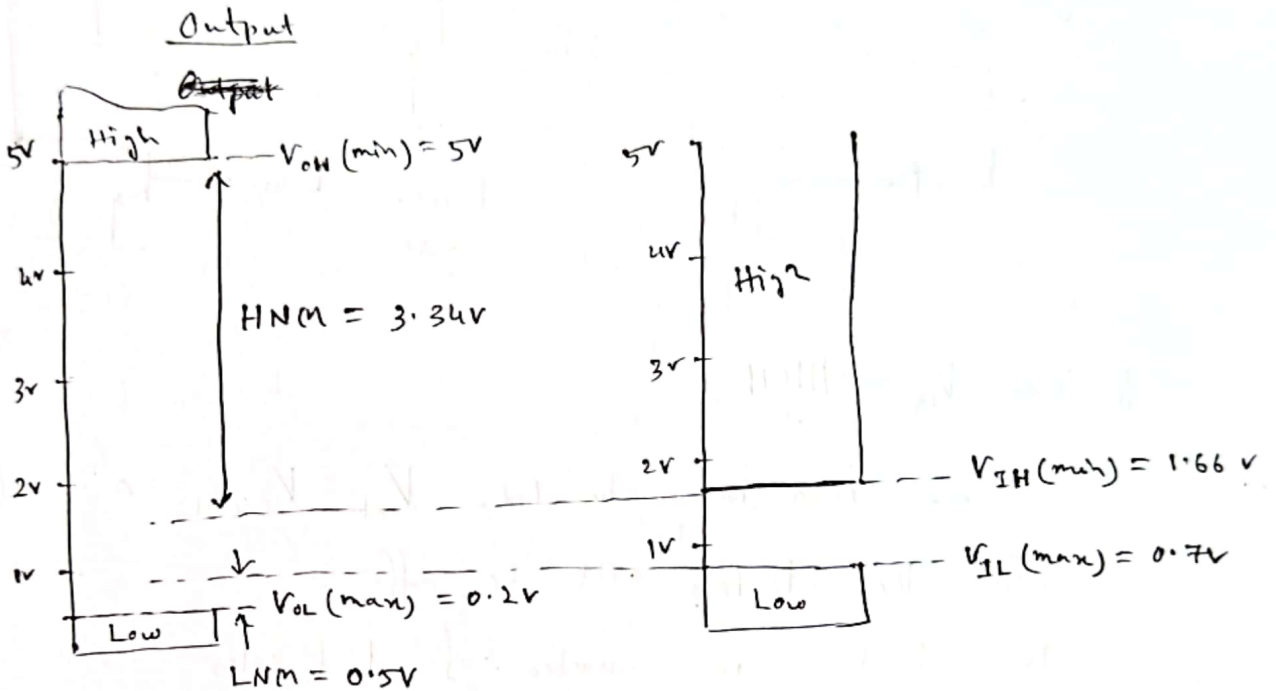 Output
High
5V
V_OH (min) = 5V
4V
HNM = 3.34V
3V
2V
1V
V_OL (max) = 0.2V
Low
LNM = 0.5V
5V
4V
High
3V
2V
V_IH (min) = 1.66 V
1V
V_IL (max) = 0.7V
Low